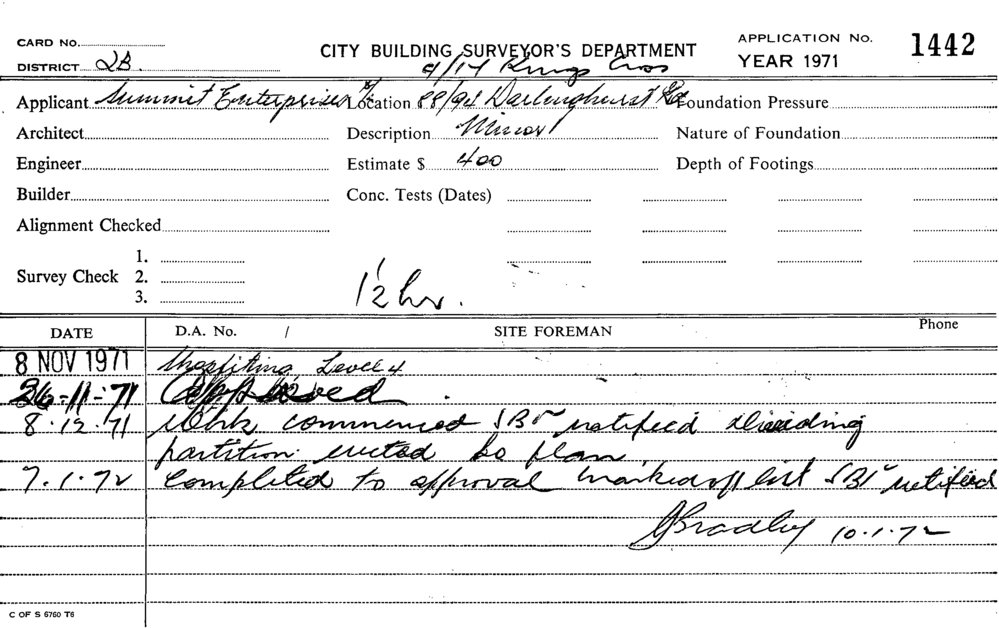 CARD No.
CITY BUILDING SURVEYOR'S DEPARTMENT
APPLICATION No. 1442
DISTRICT 2B
YEAR 1971
9/17 Kings Cross
Applicant Summit Enterprises Location 88/94 Darlinghurst Rd Foundation Pressure
Architect Description Minor Nature of Foundation
Engineer Estimate $ 400 Depth of Footings
Builder Conc. Tests (Dates)
Alignment Checked
1.
Survey Check 2.
3.
1/2 hr.
DATE D.A. No. / SITE FOREMAN Phone
8 NOV 1971 Shopfitting Level 4
26-11-71 Approved
8.12.71 Work commenced SBI notified dividing
partition erected to plan
7.1.72 Completed to approval marked off list SBI notified
JBradley 10.1.72
C OF S 6760 T6